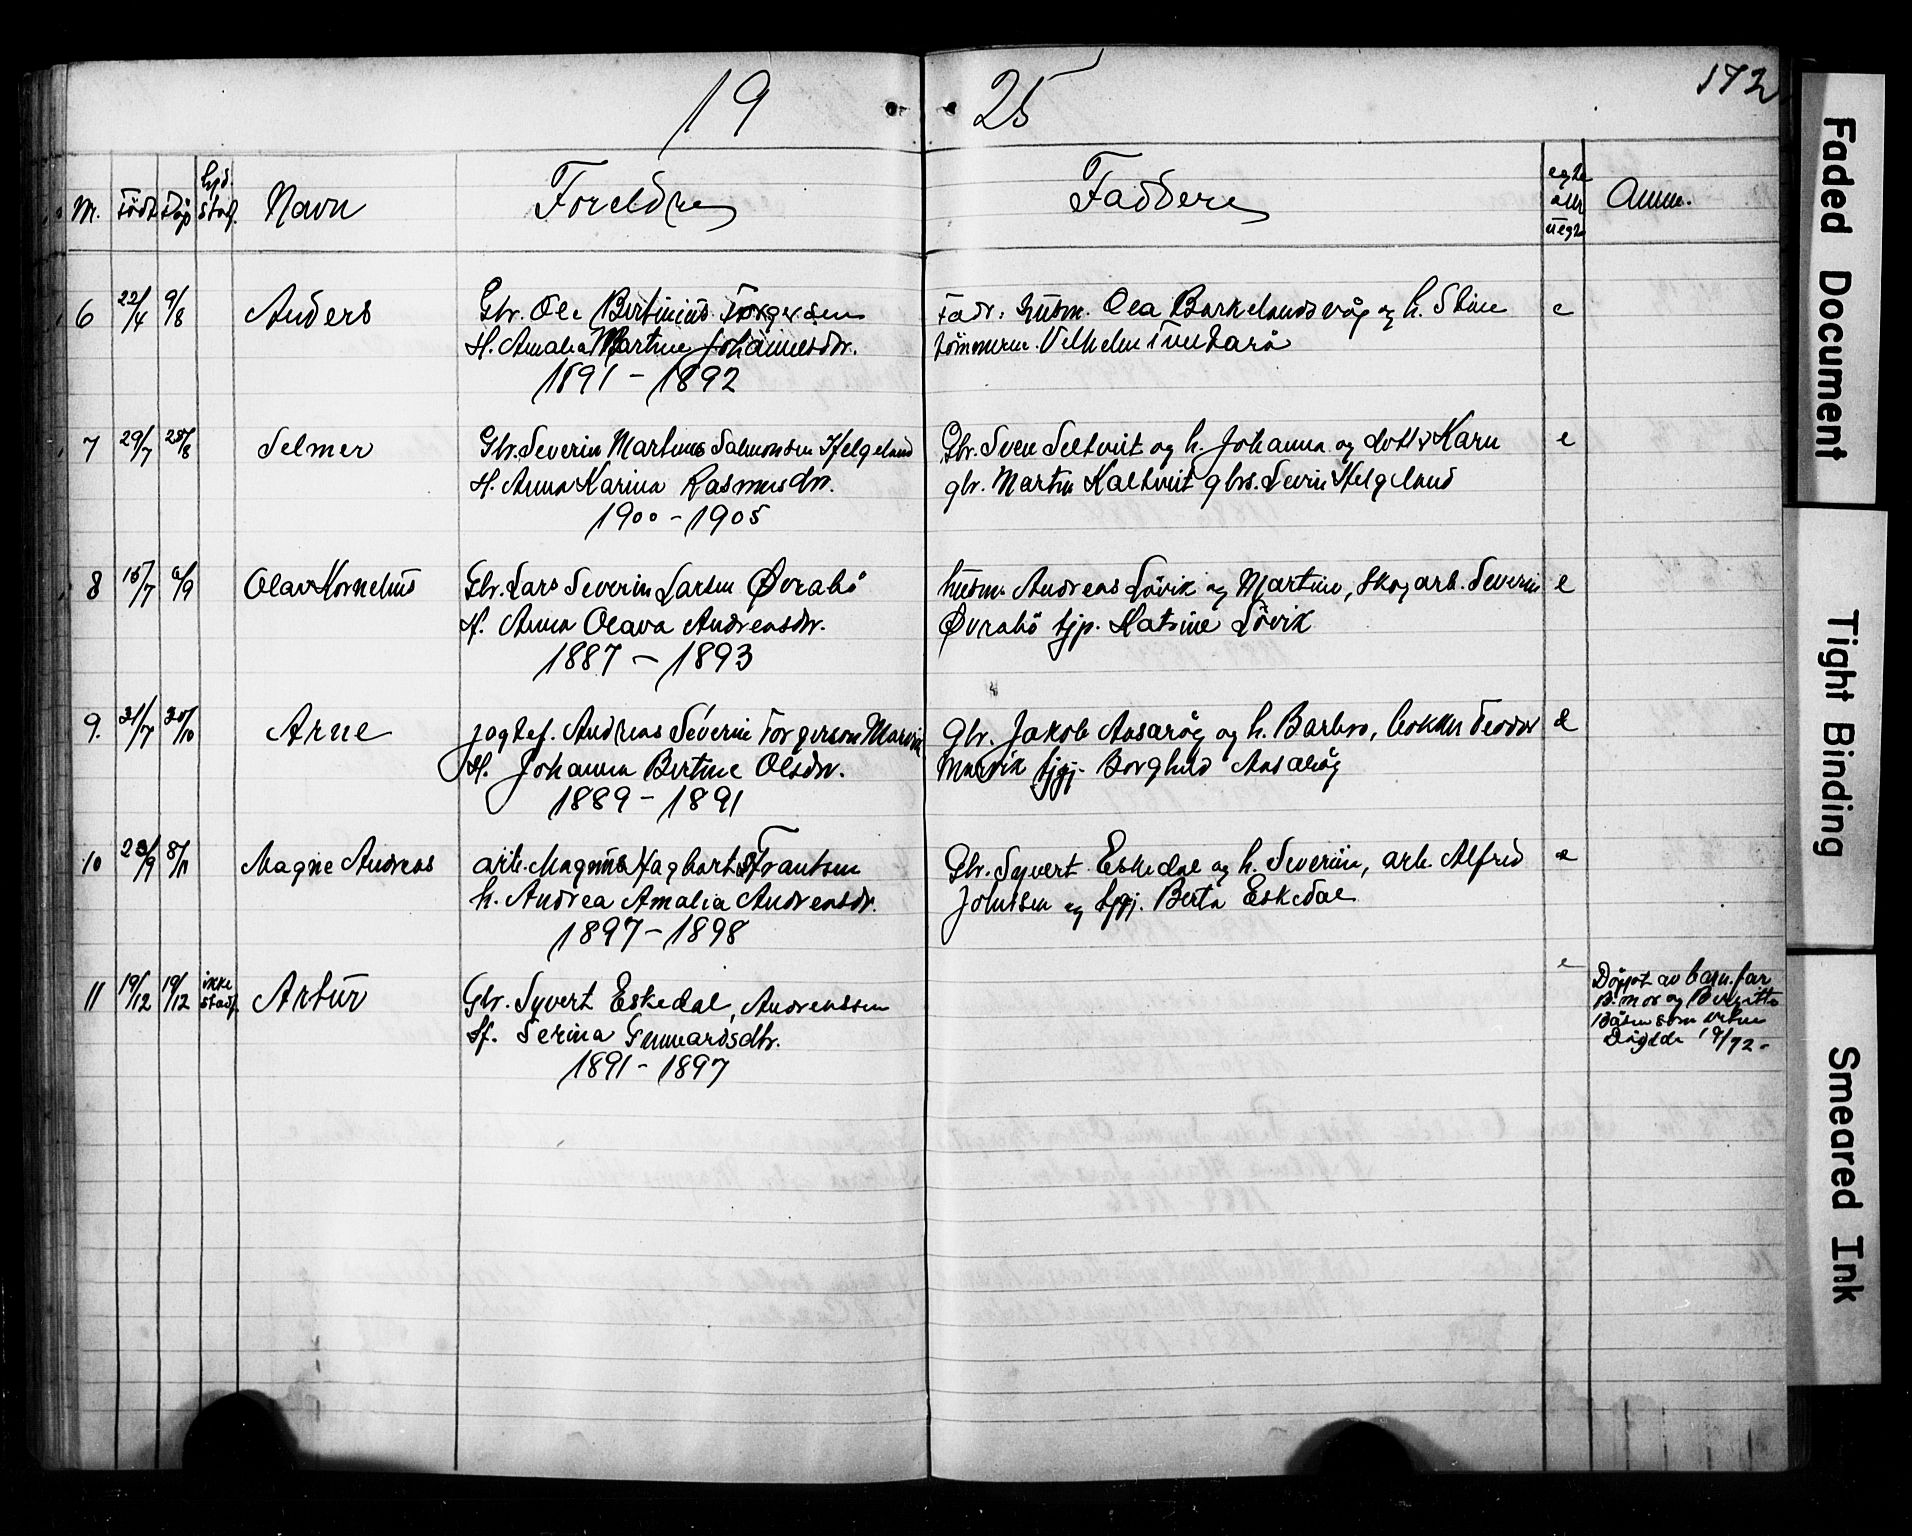 19 25
172
Nr. Födt Döp hjd. staf. Navn Foreldre Faddere egte eller uegte Anm.
6 22/4 9/8 Anders Gbr. Ole Bertinius Torgersen
H. Amalia Martine Johannesdtr.
1891 - 1892
Fadr: husm. Ola Barkelandsvåg og h. Stine
tömmerm. Vilhelm Tveitarå
e
7 29/7 25/8 Selmer Gbr. Severin Martinus Salmonsen Helgeland
H. Anna Karina Rasmusdtr.
1900 - 1905
Gbr. Sven Seltveit og h. Johanna og dotter Karu
gbr. Martin Kaltveit gbrs. Sevrin Helgeland
e
8 15/7 6/9 Olav Kornelius Gbr. Lars Severin Larsen Øvrabö
H. Anna Olava Andreasdtr.
1887 - 1893
husm. Andreas Lövik og Martine, Skogarb. Severin
Øvrabö tjp. Katrine Lövik
e
9. 31/7 25/10 Arne jagtef. Andreas Séverin Torgersen Marvik
H. Johanna Bertine Olsdtr.
1889 - 1891
Gbr. Jakob Aasarög og h. Barbro, Teodor
Marvik tjgj. Borghild Aasarög
e
10 23/9 8/11 Magne Andreas arb. Magnus Hagbart Frantsen
h. Andrea Amalia Andreasdtr.
1897 - 1898
Gbr. Syvert Eskedal og h. Severine, arb. Alfred
Johnsen og tjgj. Berta Eskedal
e
11 19/12 19/12 ikke stadf. Artur Gbr. Syvert Eskedal, Andreassen
H. Serina Gunnarsdtr.
1891 - 1897
e
Döypt av barn. far
B. mor og Bergitte
Båsen som vitne
19/12 -
Faded Document
Tight Binding
Smeared Ink